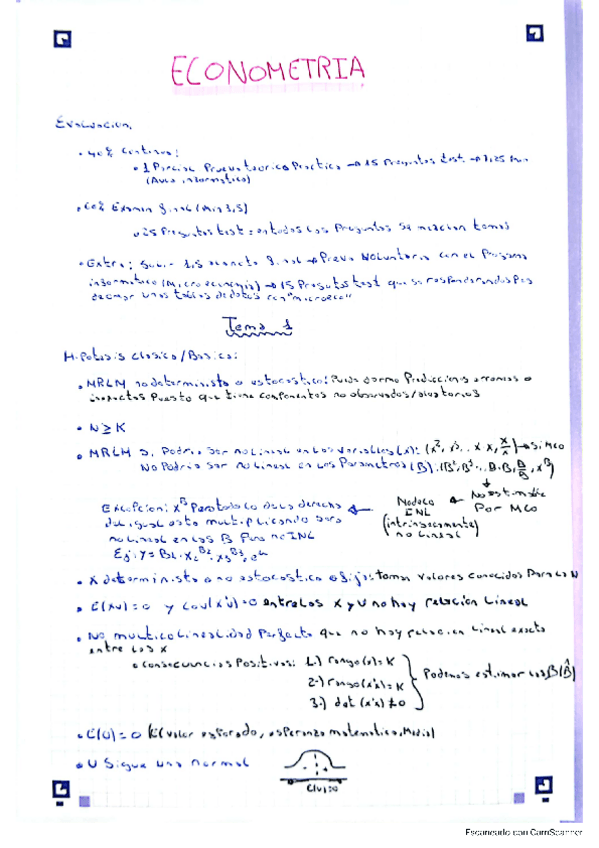 ECONOMETRIA
Evaluación.
• 40% Continua:
• 1 Parcial Prueba teorico Practica → 15 Preguntas test → 1,25 h
(Aula informatica)
• 60% Examen final (Min 3,5)
25 Preguntas test: entodas las Preguntas Se mezclan temas
• Extra: Sub. 1,5 final → Prueba Voluntaria con el Programa
informatico (Microeconomia) → 15 Preguntas test que se responderan
unas tablas de datos con "microeco"
Tema 1
Hipotesis Clasica/Basica:
• MRLM no determinista o estocastico: Puede darme Predicciones erroneas o
inexactas Puesto que tiene componentes no observados/aleatorios
• N ≥ K
• MRLM Si Podria Ser no lineal en las Variables (x): → Si MCO
No Podria Ser no lineal en los Parametros (B):
No estimable
Por MCO
Modelo
ENL
(intrinsecamente)
no lineal
Excepcion: x^B Pero todo lo de la derecha
del igual esta multiplicando sera
no lineal en los B Pero no INL
Ej: Y = B1·x2^B2·x3^B3·e^u
• X determinista o no estocastica o fijas toman Valores conocidos Para las N
• E(xu)=0 y Cov(x'u)=0 entre las X y U no hay relacion lineal
• No multicolinealidad Perfecta que no hay relacion lineal exacta
entre las x
Consecuencias Positivas: 1.) rango(x)=K
2.) rango(x'x)=K
3.) det (x'x)≠0
Podemos estimar los B(B̂)
• E(U)=0 (E(Valor esperado, esperanza matematica, Media)
• U Sigue una normal
E(u)=0
Escaneado con CamScanner